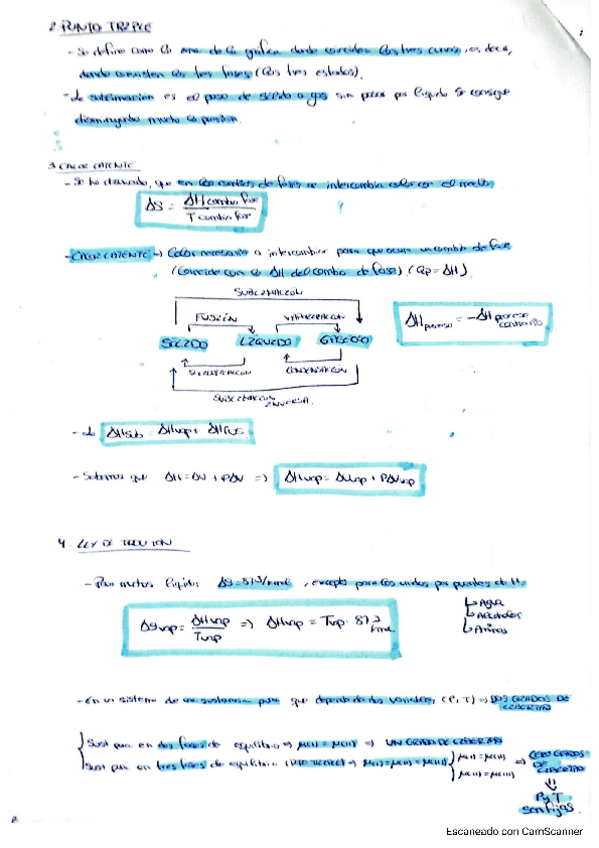 2. PUNTO TRIPLE
- Se define como la zona de la gráfica donde coinciden las tres curvas, es decir,
donde coexisten las tres fases (los tres estados).
- La sublimación es el paso de sólido a gas sin pasar por líquido. Se consigue
disminuyendo mucho la presión.
3. CALOR LATENTE
- Se ha observado, que en los cambios de fase se intercambia calor con el medio
ΔS = ΔH cambio fase / T cambio fase
- CALOR LATENTE → Calor necesario a intercambiar para que ocurra un cambio de fase
(Coincide con la ΔH del cambio de fase) (Qp = ΔH).
SUBLIMACIÓN
FUSIÓN VAPORIZACIÓN
SÓLIDO LÍQUIDO GASEOSO
SOLIDIFICACIÓN CONDENSACIÓN
SUBLIMACIÓN
INVERSA.
ΔH proceso = -ΔH proceso contrario
- La ΔHsub = ΔHvap + ΔHfus
- Sabemos que ΔH = ΔU + PΔV => ΔHvap = ΔUvap + PΔVvap
4. LEY DE TROUTON
- Para muchos líquidos ΔS = 87 J/Kmol, excepto para los unidos por puentes de H.
Agua
Alcoholes
Aminas
ΔSvap = ΔHvap / Tvap => ΔHvap = Tvap · 87 J/Kmol
- En un sistema de una sustancia pura que depende de dos variables, (P, T) => DOS GRADOS DE
LIBERTAD
Sust pura en dos fases de equilibrio => μ(s) = μ(l) => UN GRADO DE LIBERTAD
Sust pura en tres fases de equilibrio => CERO GRADOS
DE
LIBERTAD
P y T
son fijas.
Escaneado con CamScanner